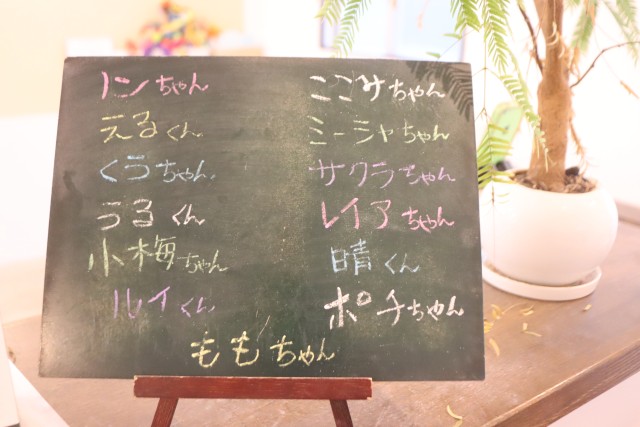 ノンちゃん
えるくん
くうちゃん
うるくん
小梅ちゃん
ルイくん
ここみちゃん
ミーシャちゃん
サクラちゃん
レイアちゃん
晴くん
ポチちゃん
ももちゃん